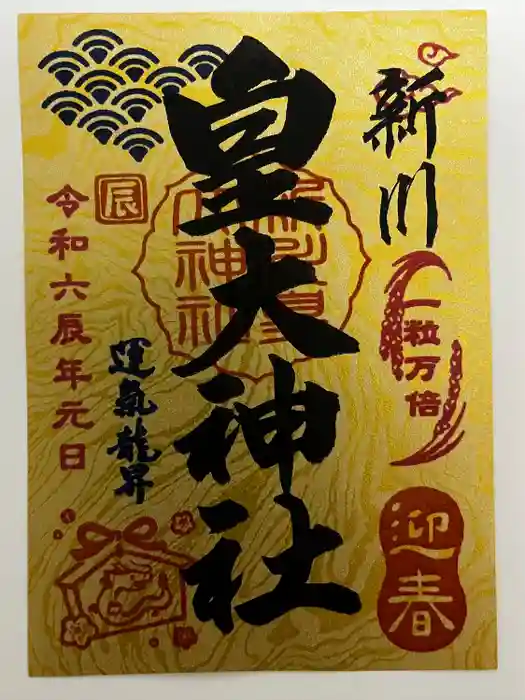 新川
皇大神社
一粒万倍
迎春
辰
令和六辰年元日
運氣龍昇
新川皇
大神社